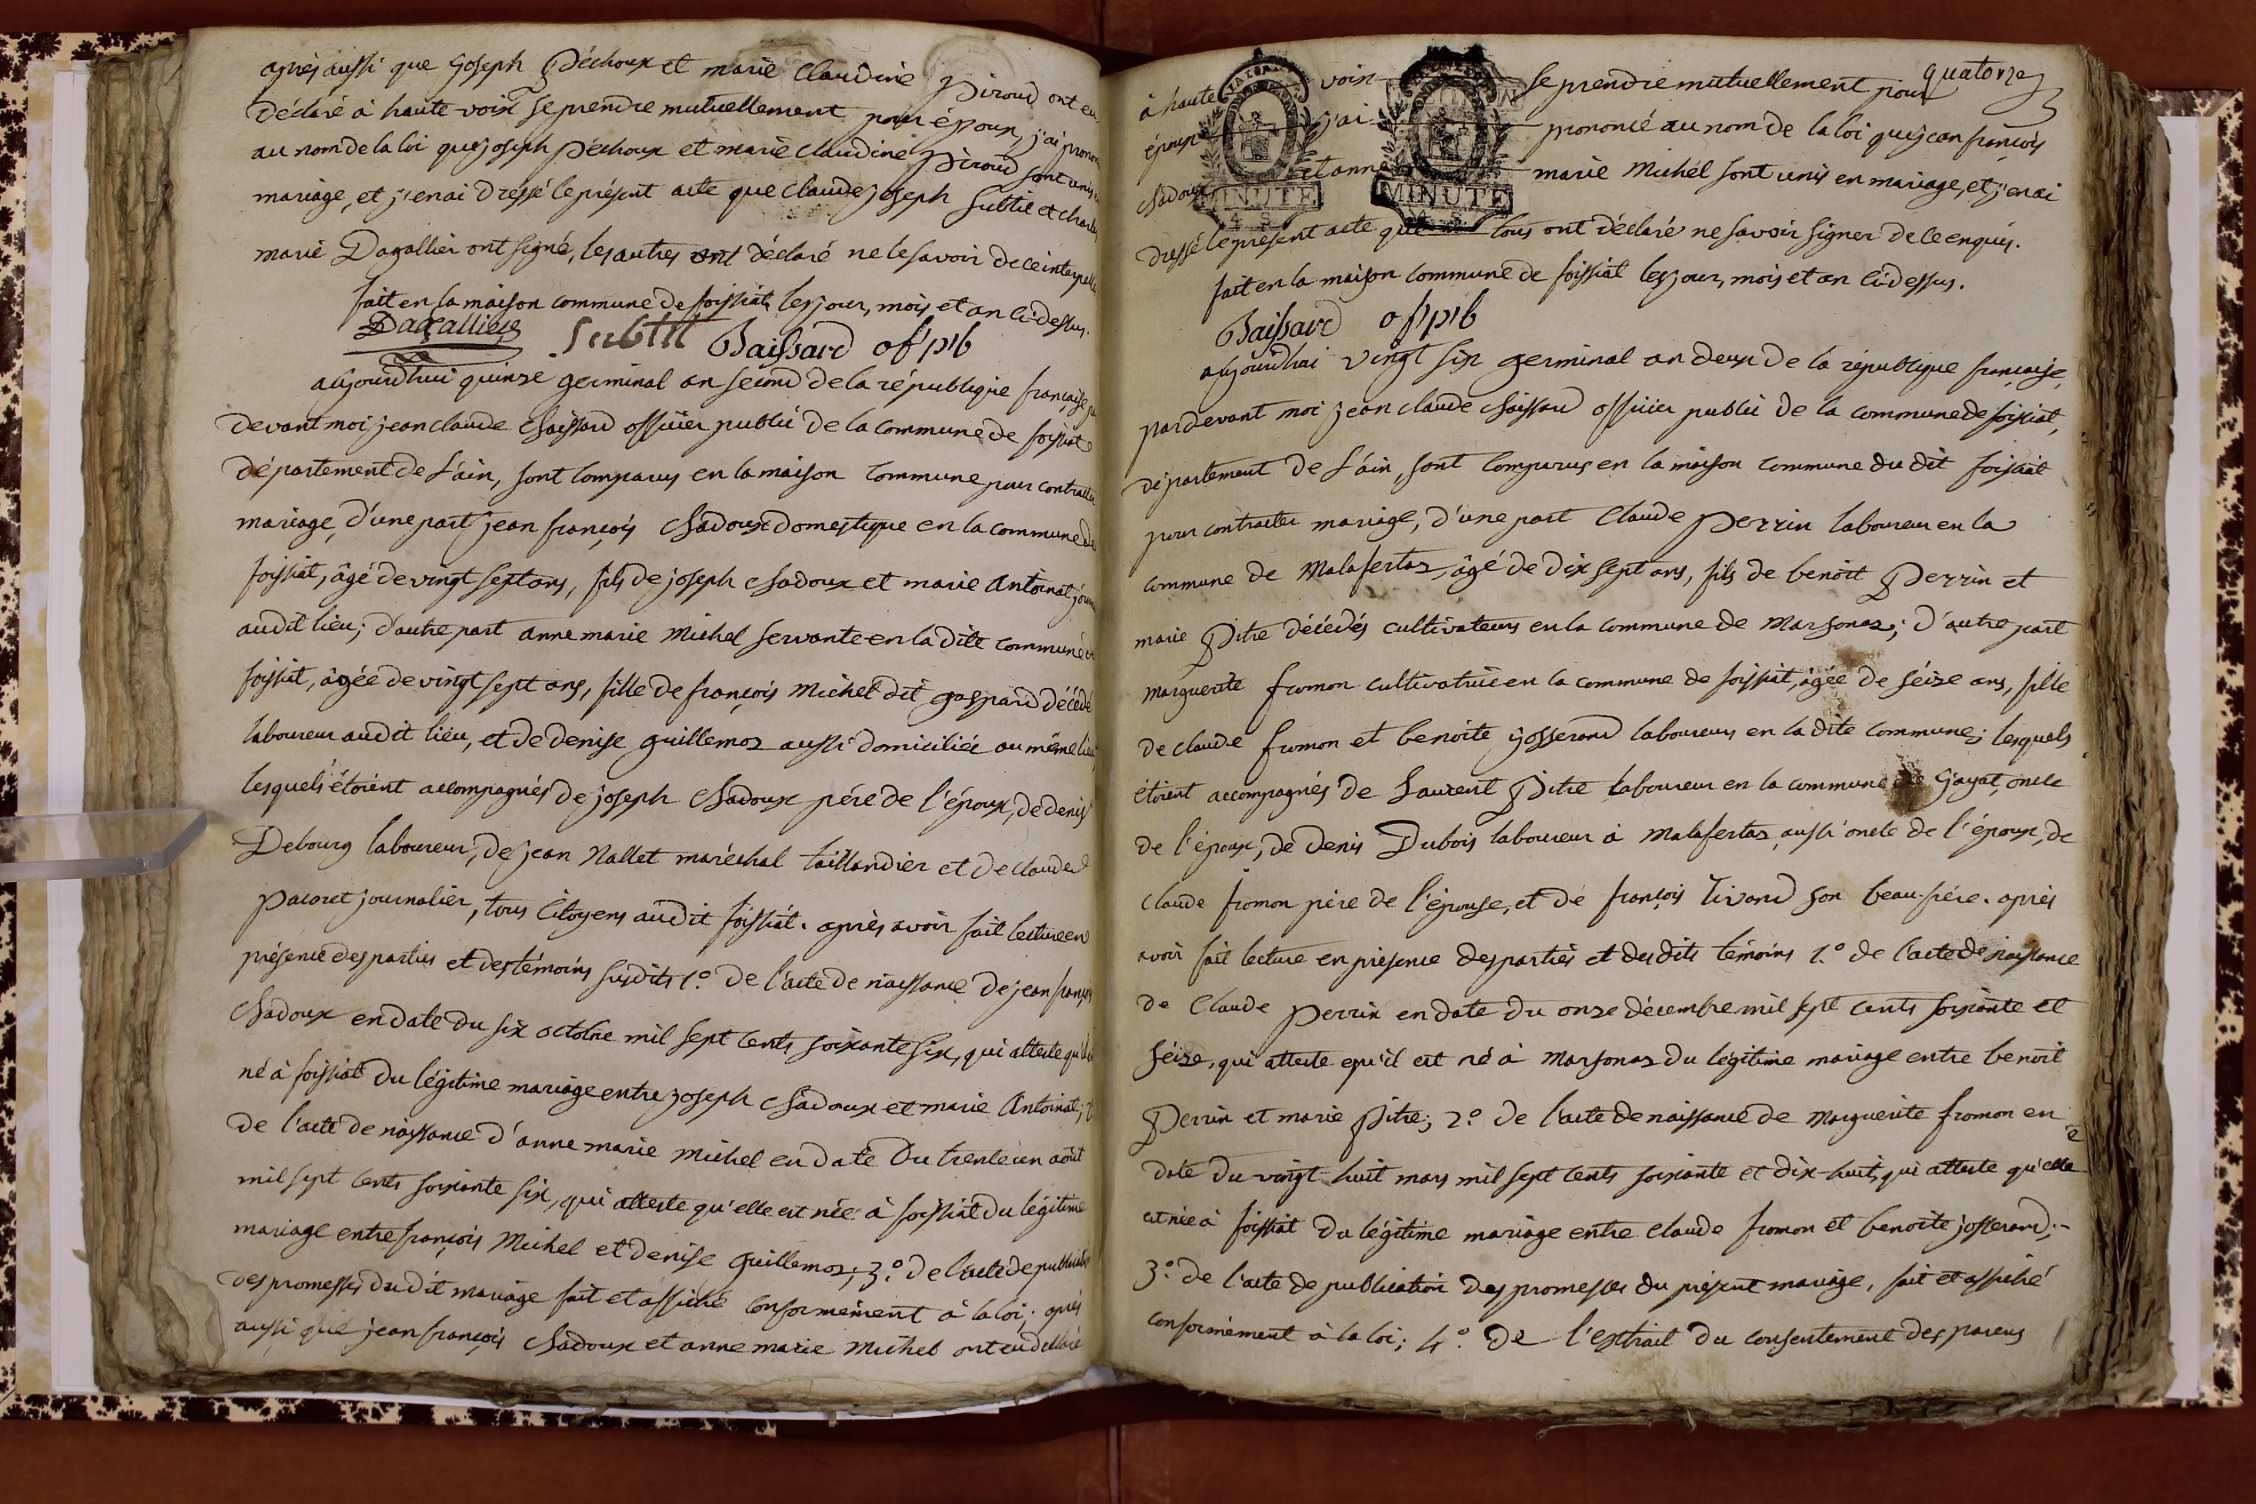 après aussi que Joseph Péchoux et marie Claudine Piroud ont eu
déclaré à haute voix se prendre mutuellement pour époux, j'ai pronon
au nom de la loi que joseph péchoux et marie claudine Piroud sont unis en
mariage, et j'en ai dressé le présent acte que claude joseph Subtil et charles
marie Dagallier ont signé, les autres ont déclaré ne le savoir de ce interpellés
fait en la maison commune de foissiat les jour, mois et an ci-dessus.
Dagallier Subtil Baissard of. p.b
aujourdhui quinze germinal an second de la république française par
devant moi jean claude Baissard officier public de la commune de foissiat
département de L'ain, sont comparus en la maison commune pour contracter
mariage, d'une part jean françois Chadoux domestique en la commune de
foissiat, âgé de vingt sept ans, fils de joseph Chadoux et marie Antoinat journ
audit lieu; d'autre part anne marie Michel servante en la dite commune de
foissiat, âgée de vingt sept ans, fille de françois Michel dit gaspard décédé
laboureur audit lieu, et de denise guillemoz aussi domiciliée au même lieu,
lesquels étoient accompagnés de joseph Chadoux père de l'époux, de denis
Debourg laboureur, de jean Nallet maréchal taillandier et de claude
pacoret journalier, tous citoyens audit foissiat. après avoir fait lecture en
présence des parties et des témoins susdits 1.° de l'acte de naissance de jean françois
Chadoux en date du six octobre mil sept cents soixante six, qui atteste qu'il est
né à foissiat du légitime mariage entre joseph Chadoux et marie Antoinat; 2°
de l'acte de naissance d'anne marie Michel en date du trente un août
mil sept cents soixante six, qui atteste qu'elle est née à foissiat du légitime
mariage entre françois Michel et denise guillemoz; 3.° de l'acte de publication
des promesses du dit mariage fait et affiché conformément à la loi; après
aussi que jean françois Chadoux et anne marie Michel ont eu déclaré
quatorze
à haute voix se prendre mutuellement pour
époux j'ai prononcé au nom de la loi que jean françois
Chadoux et anne marie Michel sont unis en mariage, et j'en ai
MINUTE
4. S.
MINUTE
4. S.
dressé le présent acte que tous ont déclaré ne savoir signer de ce enquis.
fait en la maison commune de foissiat les jour, mois et an ci-dessus.
Baissard of. p.b
aujourdhui vingt six germinal an deux de la république française,
pardevant moi jean claude Baissard officier public de la commune de foissiat,
département de L'ain, sont comparus en la maison commune du dit foissiat
pour contracter mariage, d'une part Claude Perrin laboureur en la
commune de Malafertaz, âgé de dix sept ans, fils de benoît Perrin et
marie Pitre décédés cultivateurs en la commune de Marsonaz; d'autre part
marguerite fromon cultivatrice en la commune de foissiat, âgée de séize ans, fille
de claude fromon et benoite josserand laboureurs en la dite commune; lesquels
étoient accompagnés de Laurent Pitre laboureur en la commune de jayat, oncle
de l'époux, de denis Dubois laboureur à Malafertaz, aussi oncle de l'époux, de
claude fromon père de l'épouse, et de françois Tivand son beau-frére. après
avoir fait lecture en présence des parties et des dits témoins 1.° de l'acte de naissance
de Claude perrin en date du onze décembre mil sept cents soixante et
séize, qui atteste qu'il est né à Marsonaz du légitime mariage entre benoit
Perrin et marie Pitre; 2.° de l'acte de naissance de Marguerite fromon en
date du vingt-huit mars mil sept cents soixante et dix-huit, qui atteste qu'elle
est née à foissiat du légitime mariage entre claude fromon et benoite josserand;
3.° de l'acte de publication des promesses du présent mariage, fait et affiché
conformément à la loi; 4.° de l'extrait du consentement des parens